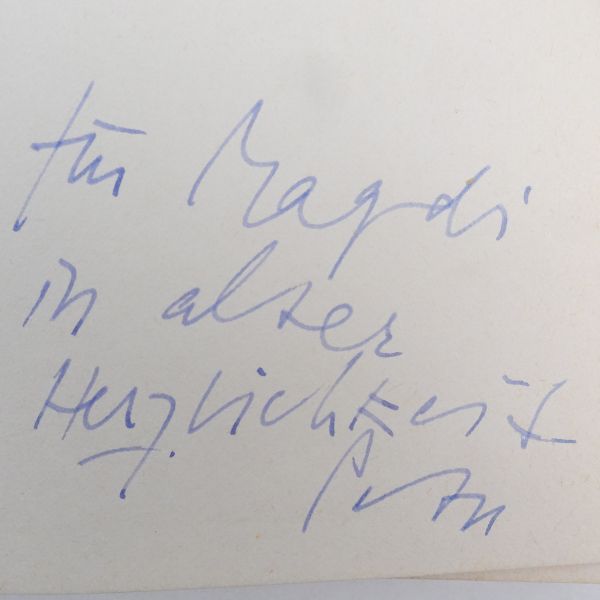 für Magdi
in alter
Herzlichkeit
Peter